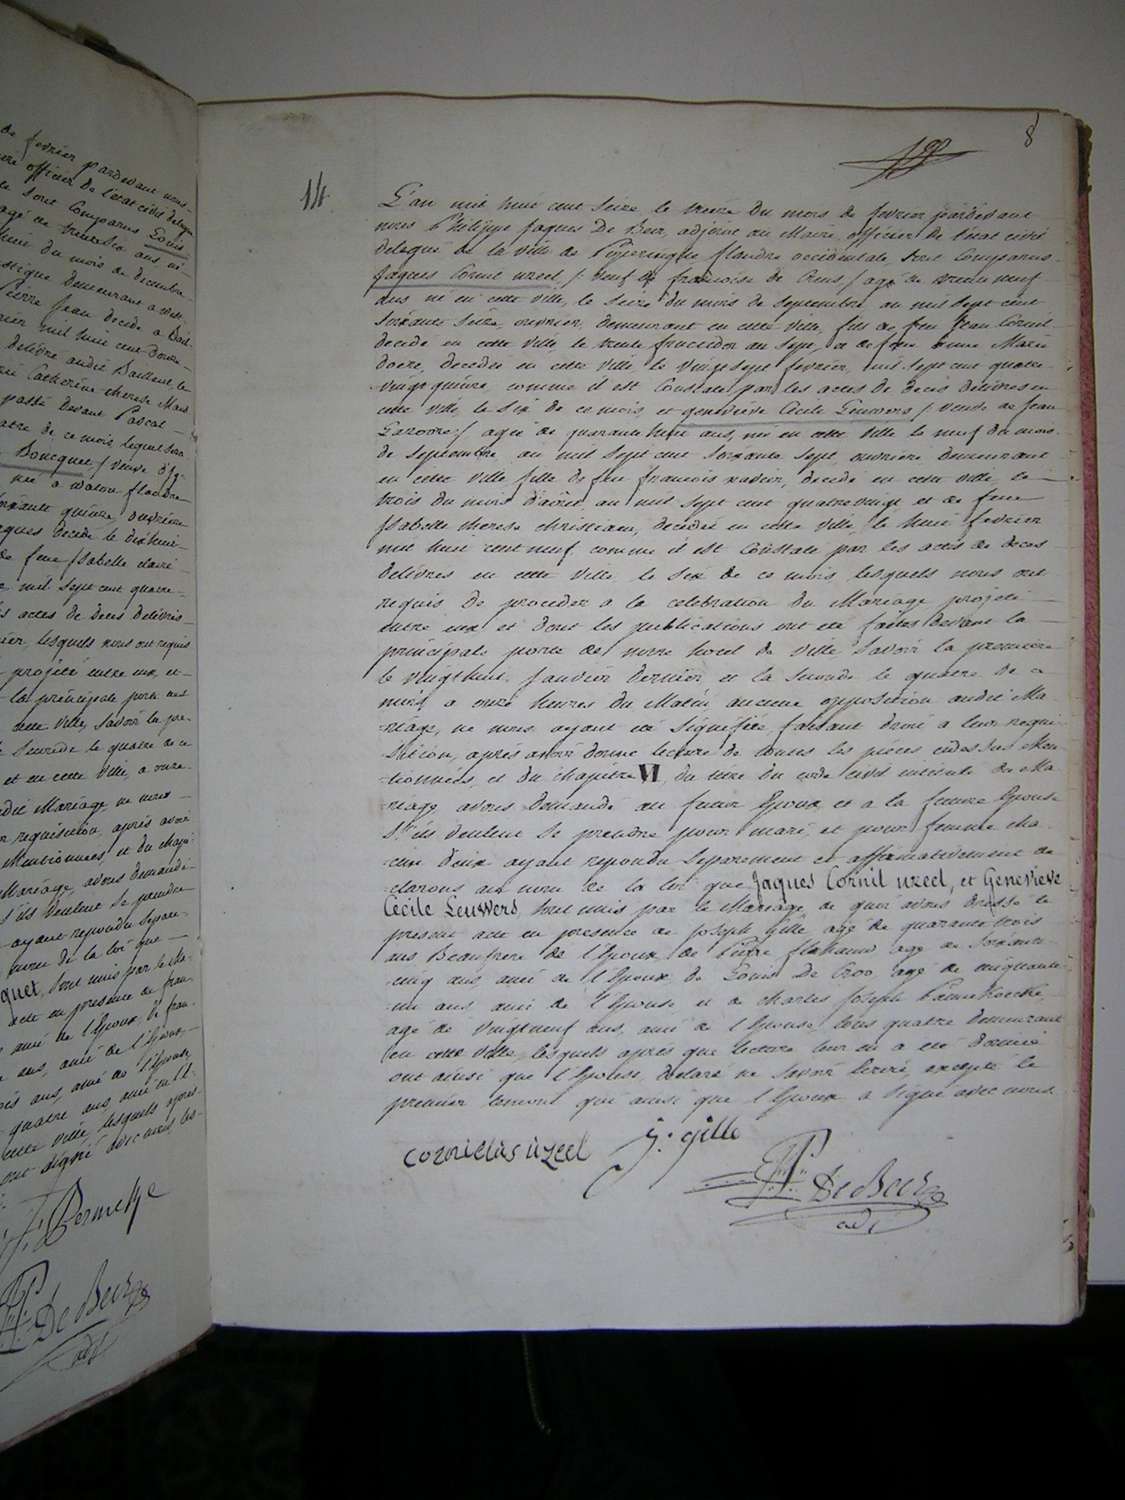 de fevrier pardevant nous
officier de l'etat civil delegué
sont Comparus Louis
agé de trente six ans, né
du mois de decembre
demeurant a
Pierre Jean decede a Bail
mil huit cent douze
delivré audit Bailleul le
Catherine therese
passé devant Pascal
quatre de ce mois lequel sera
Boucquet / veuve d'
née a watou flandre
soixante quinze, ouvriere
Jaques decede le dix huit
de feue Isabelle claire
mil sept cent quatre
actes de deces delivrés
lesquels nous ont requis
projeté entre eux et
la principale porte de
cette ville, savoir la pre
seconde le quatre de ce
et en cette ville, a onze
audit Mariage ne nous
requisition, après avoir
Mentionnées, et du chapi
Mariage, avons demandé
s'ils veulent se prendre
ayant repondu separe
nom de la loi que
quet, sont unis par le Ma
acte en presence de fran
ami de l'Epoux, de fran
ans, ami de l'Epoux
trois ans, ami de l'Epouse
quatre ans ami de l'E
cette ville, lesquels après
ont signé avec nous les
Permeke
PJ De Beir
adjt
8
14
L'an mil huit cent seize le treize du mois de fevrier pardevant
nous Philippe Jaques De Beir, adjoint au Maire officier de l'état civil
delegué de la ville de Poperingue flandre occidentale sont Comparus
Jaques Cornil uzeel / veuf de francoise de / agé de trente neuf
ans né en cette ville, le seize du mois de septembre an mil sept cent
soixante seize, ouvrier, demeurant en cette ville, fils de feu Jean Cornil
decede en cette ville le trente fructidor an sept, et de feue Anne Marie
decedée en cette ville le vingt sept fevrier, mil sept cent quatre
vingt quinze comme il est Constaté par les actes de deces delivrés en
cette ville le six de ce mois et geneviève Cécile Leuwers / veuve de Jean
/ agée de quarante huit ans, née en cette ville le neuf du mois
de septembre an mil sept cent soixante sept, ouvriere demeurant
en cette ville fille de feu francois xavier, decede en cette ville, le
trois du mois d'août an mil sept cent quatrevingt et de feue
Isabelle therese christiaen, decedée en cette ville le huit fevrier
mil huit cent neuf comme il est Constaté par les actes de deces
delivrés en cette ville, le six de ce mois, lesquels nous ont
requis de proceder a la celebration du Mariage projeté
entre eux et dont les publications ont été faites devant la
principale porte de notre hotel de ville, Savoir la premiere
le vingthuit Janvier dernier et la seconde le quatre de ce
mois, a onze heures du Matin, aucune opposition audit Ma
riage, ne nous ayant été signifiée faisant droit a leur requi
sition, après avoir donné lecture de toutes les pièces cidessus Men
tionnées, et du chapitre VI, du titre du code civil intitulé du Ma
riage, avons Demandé au futur Epoux et a la future Epouse
S'ils veulent se prendre pour mari et pour femme cha
cun d'eux ayant repondu Separement et affirmativement de
clarons au nom de la loi que Jaques Cornil uzeel, et Genevieve
Cécile Leuwers, sont unis par le Mariage, de quoi avons dressé le
present acte en presence de Joseph Gille agé de quarante trois
ans Beaufrere de l'Epoux, de Pierre flahauw agé de soixante
cinq ans, ami de l'Epoux de Louis De Croo agé de cinquante
un ans, ami de l'Epouse et de Charles Joseph Pannekoecke,
agé de Vingtneuf ans, ami de l'Epouse tous quatre demeurant
en cette Ville, lesquels après que lecture leur en a été donnée
ont ainsi que l'Epouse, declaré ne savoir Ecrire, excepté le
premier temoin qui ainsi que l'Epoux a signé avec nous
cornielus uzeel J. gille
PJ De Beir
adjt